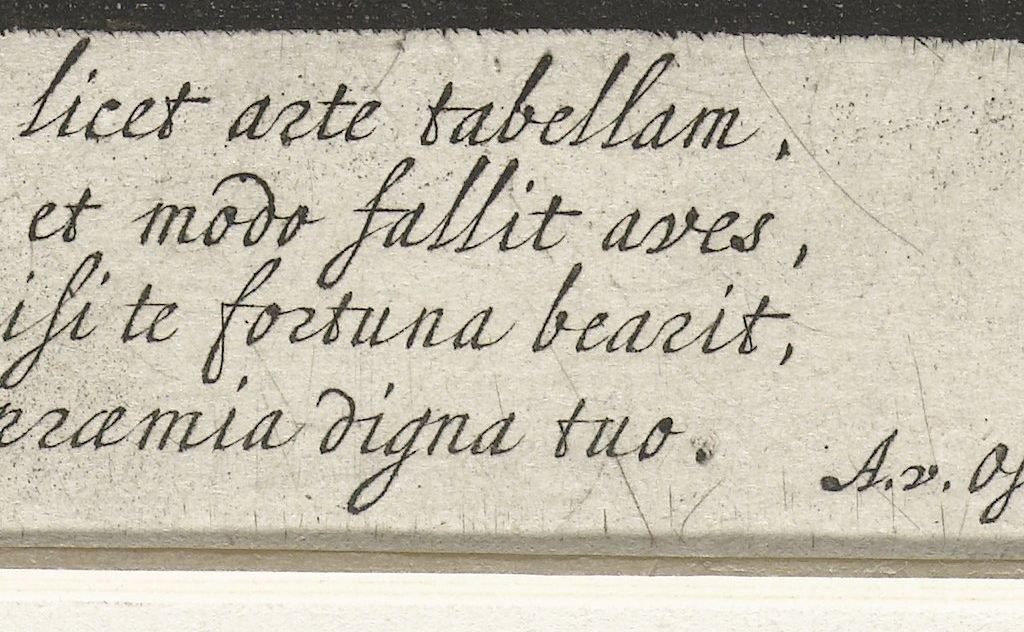 licet arte tabellam,
et modo fallit aves,
isi te fortuna bearit,
præmia digna tuo.
A.v. Os